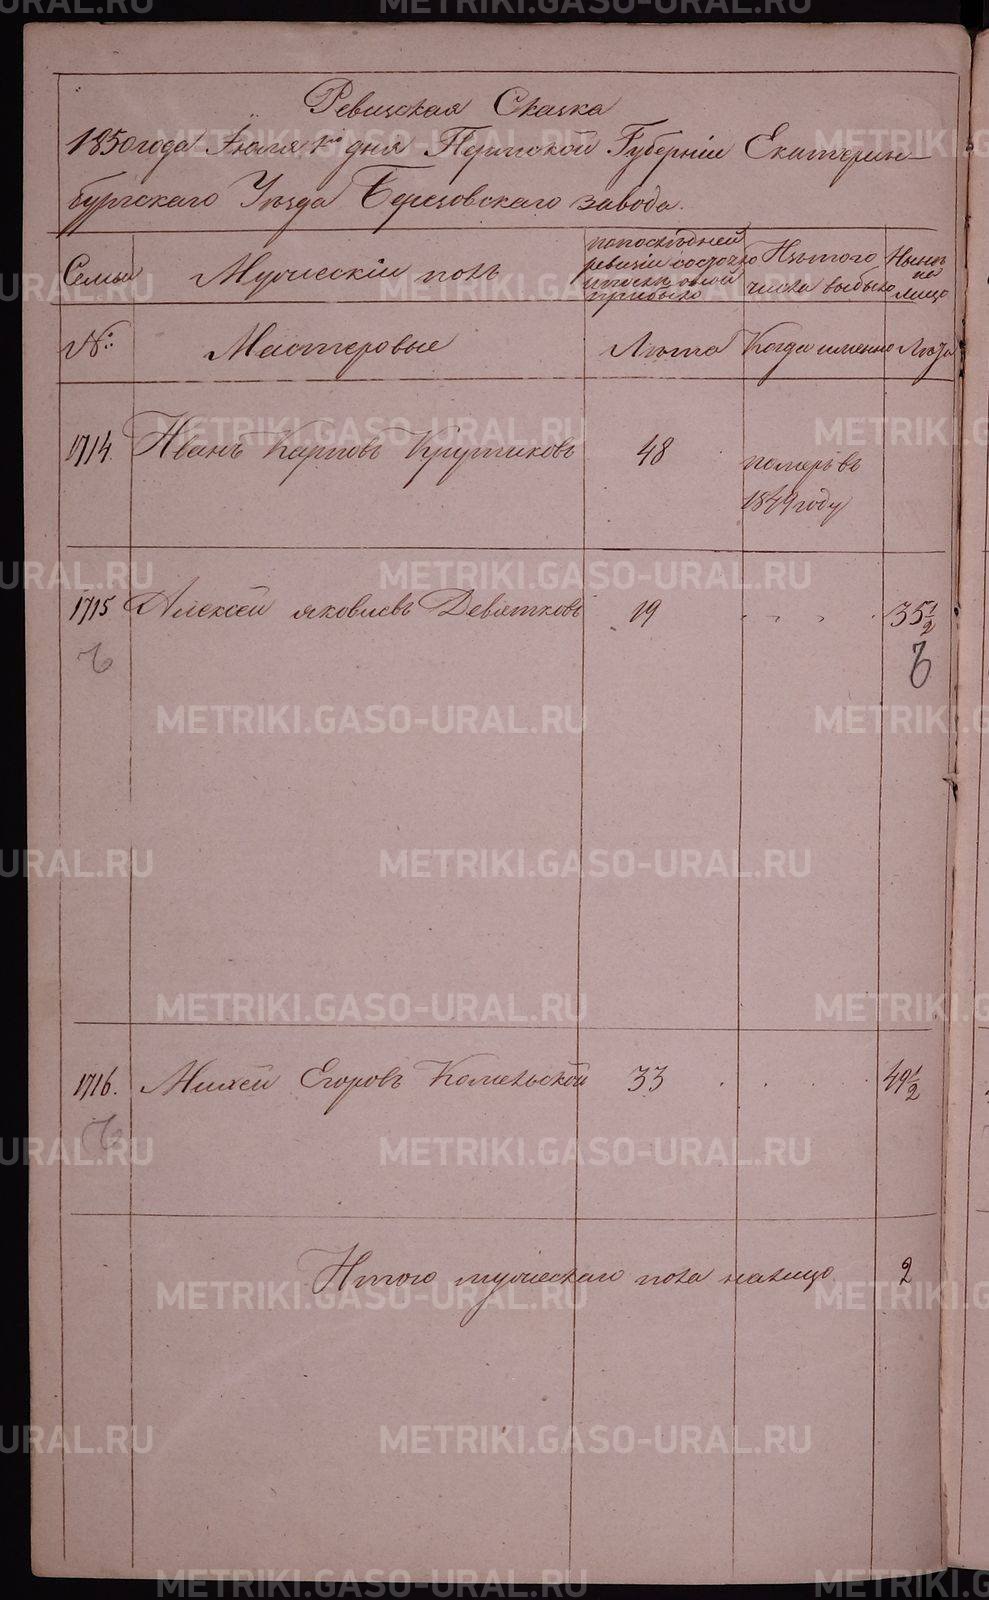 Ревизская Сказка
1850 года Июля 1го дня Пермской Губерніи Екатерин-
бургскаго Уезда Березовскаго завода.
Семьи Мужескій полъ по последней ревизіи состояло и после оной прибыло Изъ того числа выбыло Ныне на лицо
№: Мастеровые Лета Когда именно Лета
1714. Иванъ Карповъ Крутиковъ 48 померъ въ
1849 году
1715 Алексей Яковлевъ Девятковъ 19 35 1/2
1716. Михей Егоровъ Комельской 33 49 1/2
Итого мужескаго пола налицо 2
METRIKI.GASO-URAL.RU